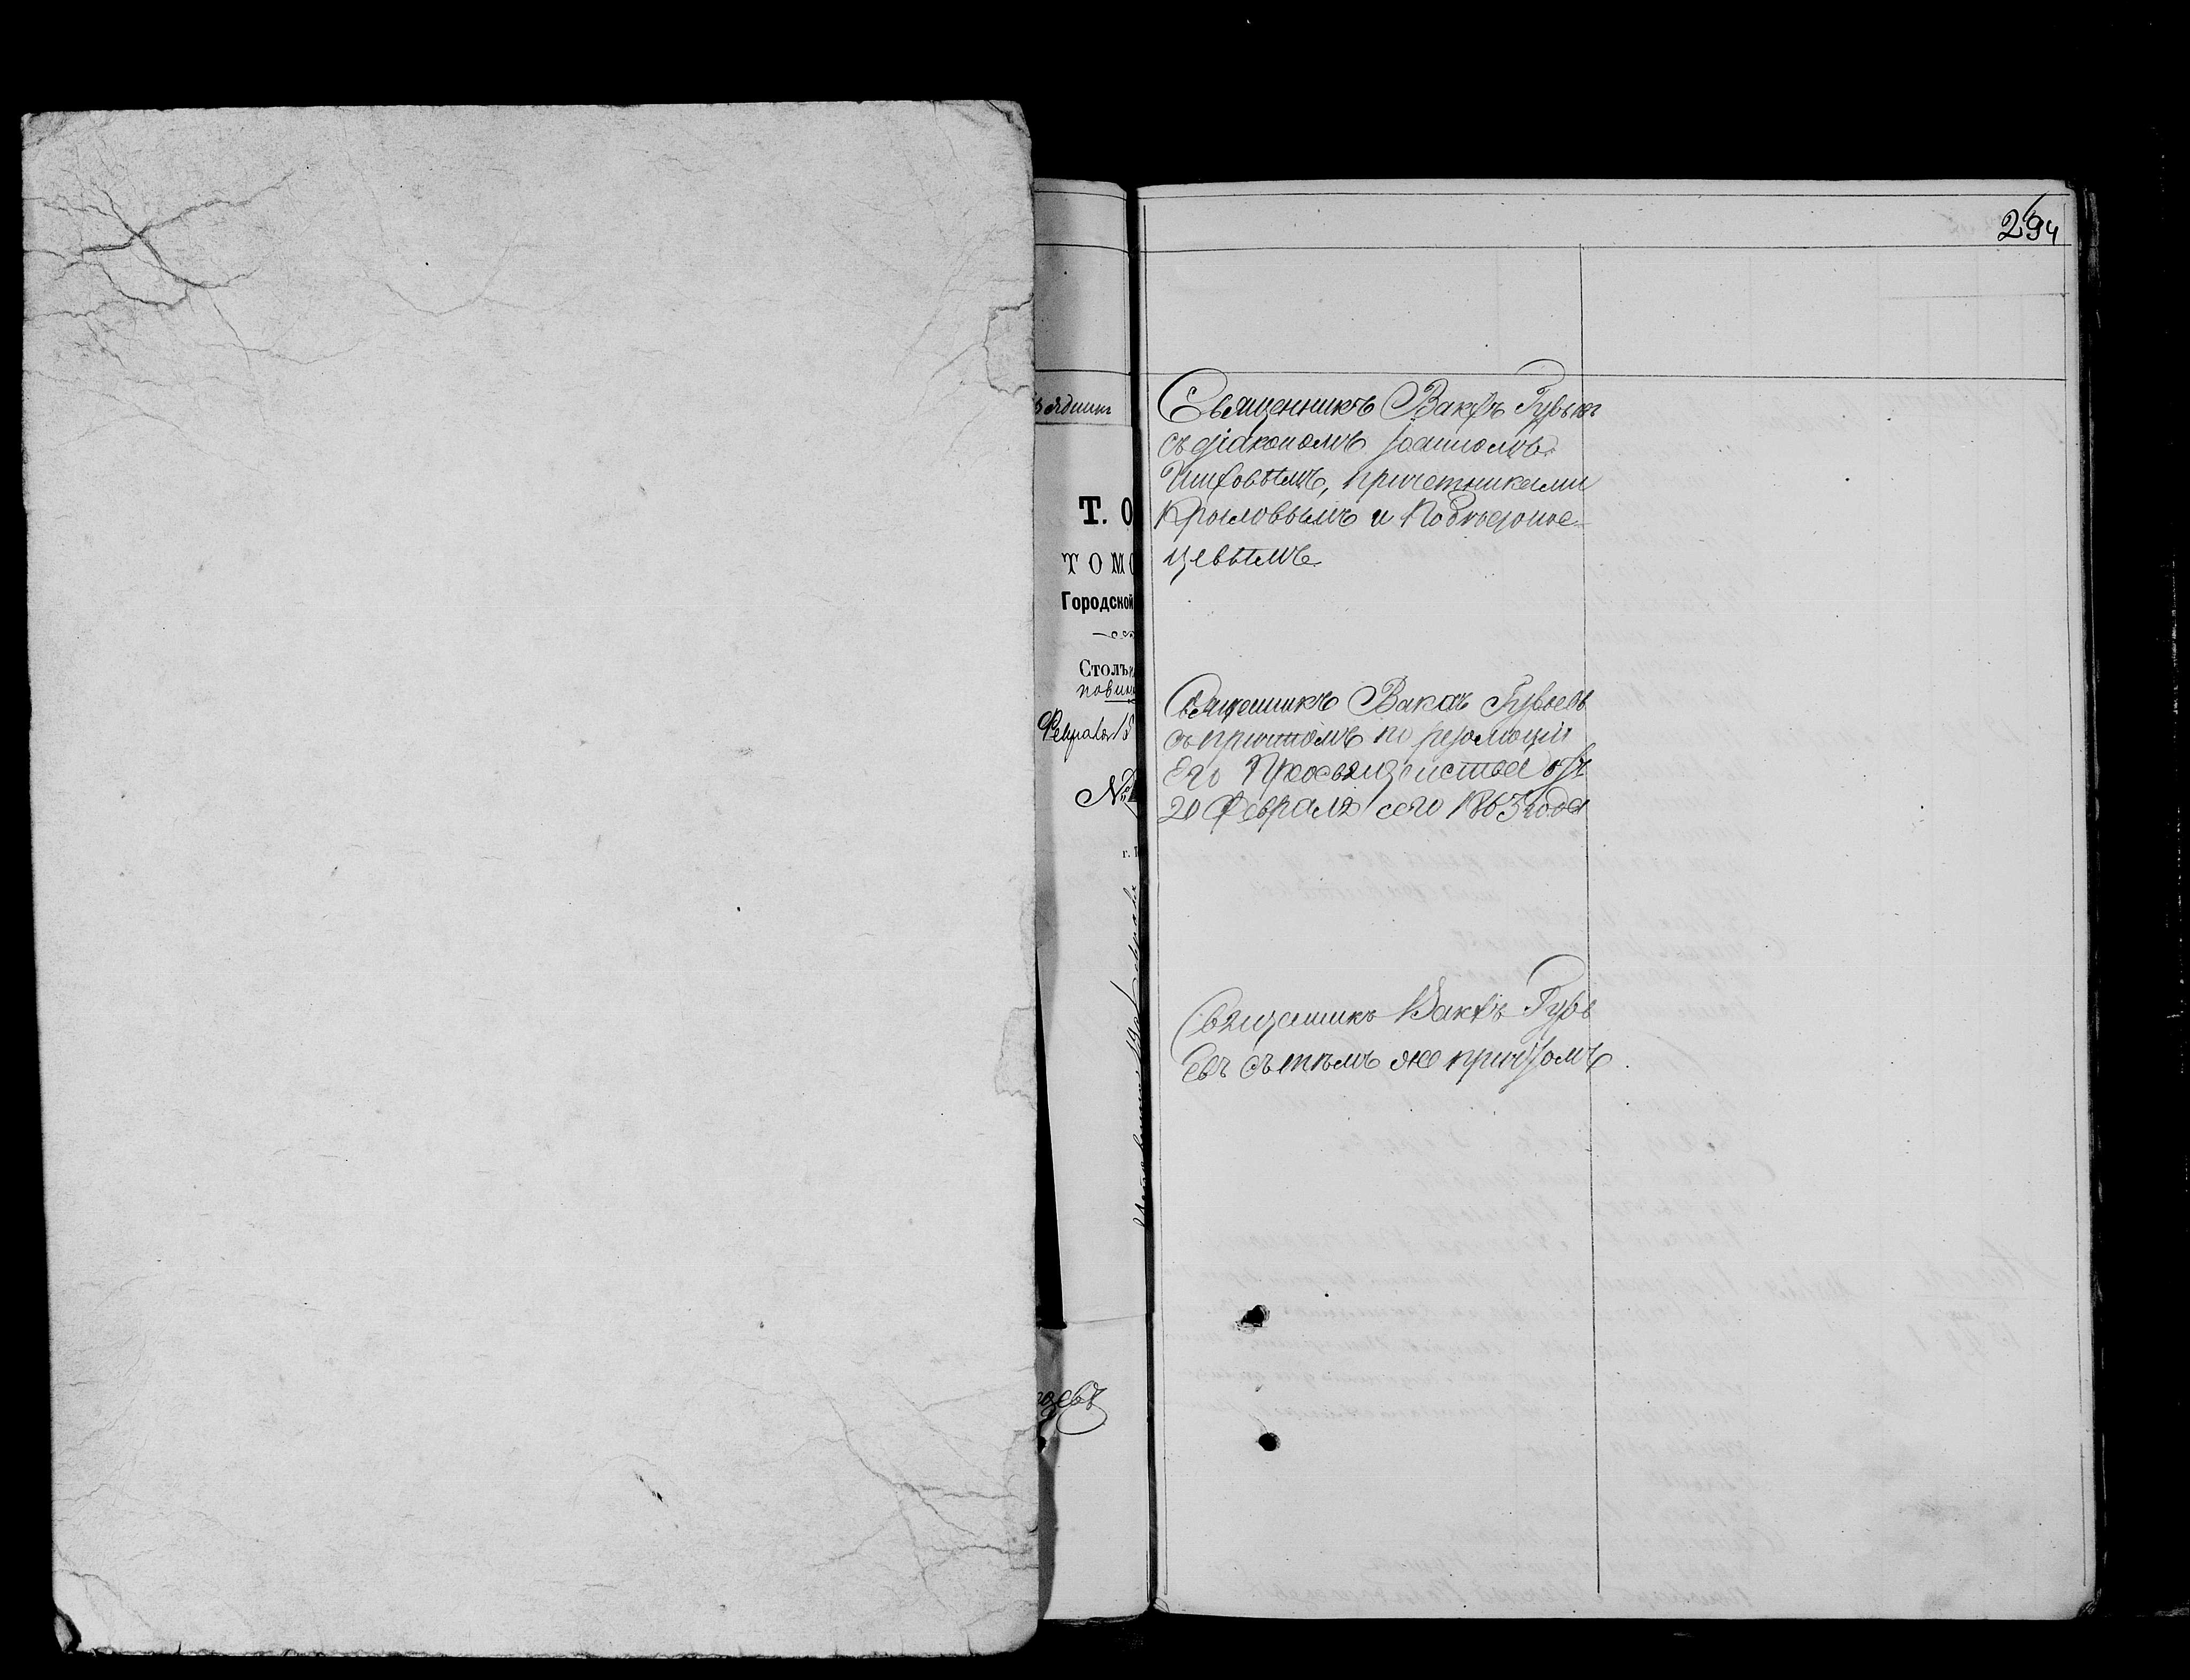 294
Священникъ Вакхъ Гурьевъ
съ діакономъ Іоанномъ
причетниками
Крыловымъ и Подкосоно-
цевымъ
Священникъ Вакхъ Гурьевъ
съ причтомъ по резолюціи
Его Преосвященства отъ
20 Февраля сего 1863 года
Священникъ Вакхъ Гурь
евъ съ тѣмъ же причтомъ
Т. О
ТОМС
Городской
Столъ
повин
Февраля 18
№
г. Т